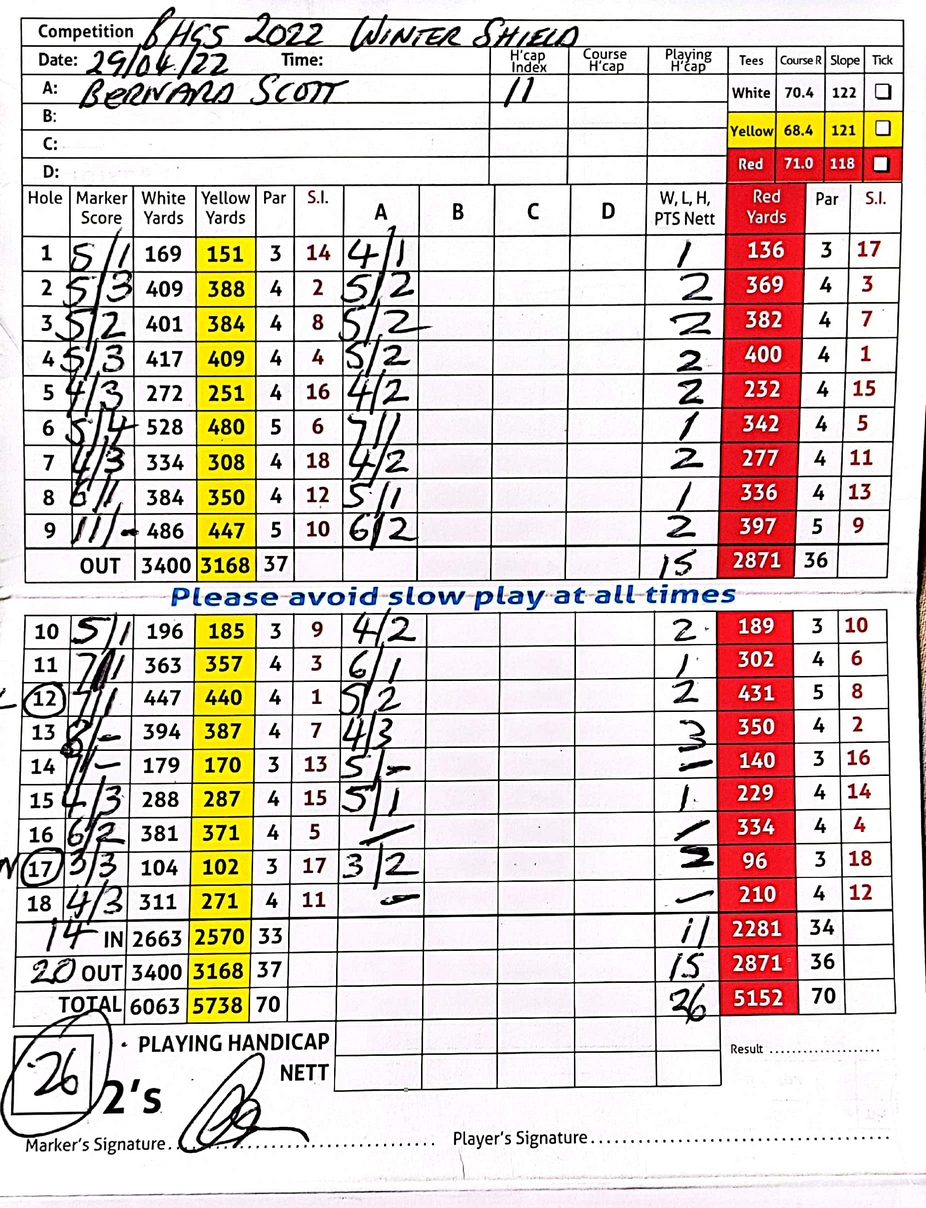 Competition BHGS 2022 WINTER SHIELD
Date: 29/04/22 Time: H'cap Index Course H'cap Playing H'cap Tees Course R Slope Tick
A: BERNARD SCOTT 11 White 70.4 122
B: Yellow 68.4 121
C:
D: Red 71.0 118
Hole Marker Score White Yards Yellow Yards Par S.I. A B C D W, L, H, PTS Nett Red Yards Par S.I.
1 5/1 169 151 3 14 4/1 1 136 3 17
2 5/3 409 388 4 2 5/2 2 369 4 3
3 5/2 401 384 4 8 5/2 2 382 4 7
4 5/3 417 409 4 4 5/2 2 400 4 1
5 4/3 272 251 4 16 4/2 2 232 4 15
6 5/4 528 480 5 6 7/1 1 342 4 5
7 4/3 334 308 4 18 4/2 2 277 4 11
8 6/1 384 350 4 12 5/1 1 336 4 13
9 11/- 486 447 5 10 6/2 2 397 5 9
OUT 3400 3168 37 15 2871 36
Please avoid slow play at all times
10 5/1 196 185 3 9 4/2 2 189 3 10
11 7/1 363 357 4 3 6/1 1 302 4 6
12 7/1 447 440 4 1 5/2 2 431 5 8
13 8/- 394 387 4 7 4/3 3 350 4 2
14 7/- 179 170 3 13 5/- - 140 3 16
15 4/3 288 287 4 15 5/1 1 229 4 14
16 6/2 381 371 4 5 - - 334 4 4
17 3/3 104 102 3 17 3/2 2 96 3 18
18 4/3 311 271 4 11 - - 210 4 12
14 IN 2663 2570 33 11 2281 34
20 OUT 3400 3168 37 15 2871 36
TOTAL 6063 5738 70 26 5152 70
26 PLAYING HANDICAP Result
2's NETT
Marker's Signature Player's Signature